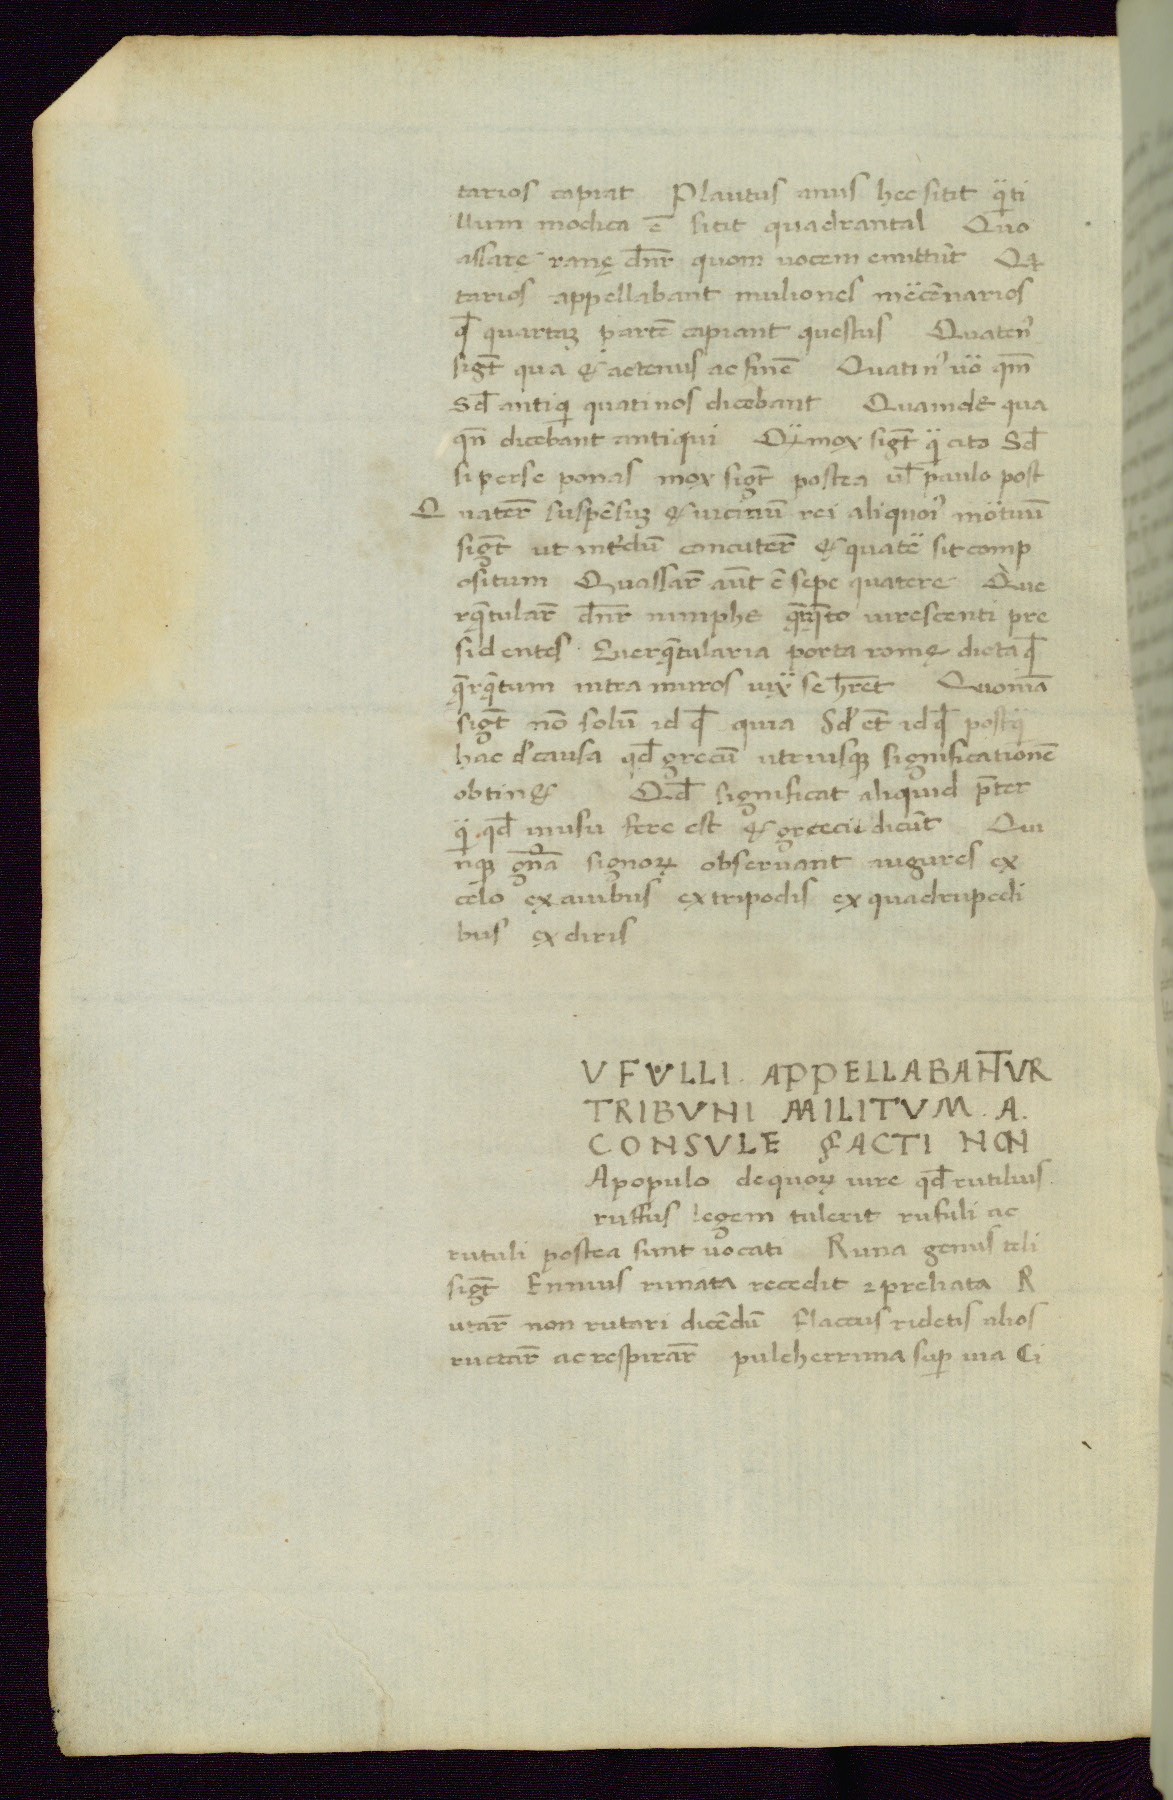 tarios capiat Plautus anus hec sitit q̈ti
llum modica ē sitit quadrantal Quo
assare ranę dn̄r quom uocem emittūt Qr
tarios appellabant muliones mercēnarios
qđ quartaʒ partē capiant questus Quaten᾽
sigt̄ qua & actenus ac finē Quatin᾽ uō qm̄
Sđ antiqi quatinos dicebant Quamde qua
qn̄ dicebant antiqui Qämox sigt̄ q̈ cito Sđ
si per se ponas mox sigt̄ postea ul̄ paulo post
Quater̄ suspēsuʒ & uicinū rei alicuoi᾽ motuū
sigt̄ ut int᾽dū concuter̄ & quate sit comp
ositum Quassar̄ aūt ē sepe quatere Que
rq̄tular̄ dn̄r nimphe q̄rq̄to uirescenti pre
sidentes Querq̄tularia porta romę dicta qđ
q̄rq̄tum intra muros iuxa se h̄ret Quoniā
sigt̄ nō solū id qđ quia Sđ et̄ id qđ postq̈
hac d᾽ causa qđ grecū utriusqʒ significationē
obtin& Qđ significat aliquid p̄ter
q̈ qđ inusu fere est & greci dicūt Qui
nqʒ gn̄a signoꝝ obseruant augures ex
celo ex auibus ex tripodis ex quadrupedi
bus ex diris
VFVLLI APPELLABANTVR
TRIBVNI MILITVM . A.
CONSVLE FACTI NON
Apopulo de quoꝝ iure qđ rutilius
ruffus legem tulerit rufuli ac
rutuli postea sunt uocati Runa genus teli
sigt̄ Ennius runata recedit ⁊ preliata R
utar̄ non rutari dicēdū flaccus ridetis alios
ructar̄ ac respirar̄ pulcherrima sup uia Ci